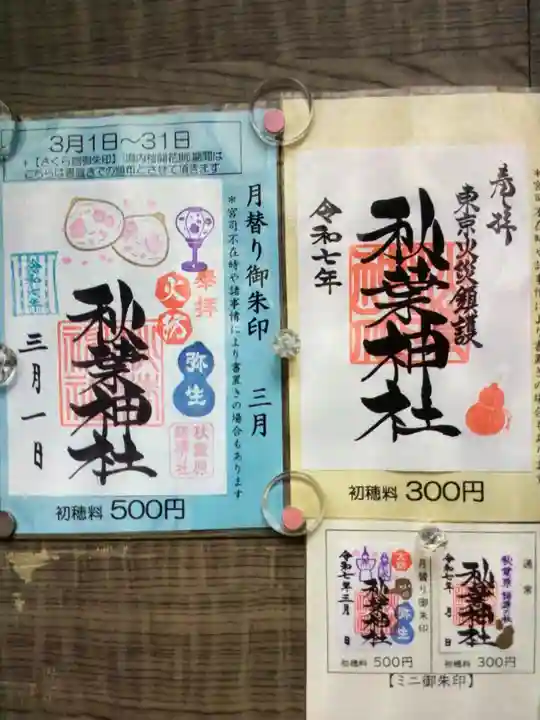 3月1日~31日
+【さくら詣御朱印】(境内桜開花期)期間は
こちらは書置きでの頒布とさせて頂きます
月替り御朱印 三月
*宮司不在時や諸事情により書置きの場合もあります
奉拝
火防
弥生
秋葉神社
令和七年
三月一日
秋葉原
総本社
初穂料 500円
奉拝
東京火災鎮護
秋葉神社
令和七年
初穂料 300円
月替り御朱印
火防
弥生
秋葉神社
令和七年三月 日
初穂料 500円
通常
秋葉神社
令和七年 月 日
初穂料 300円
【ミニ御朱印】